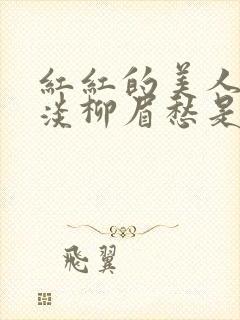 红红的美人
淡柳眉愁是
飛翼